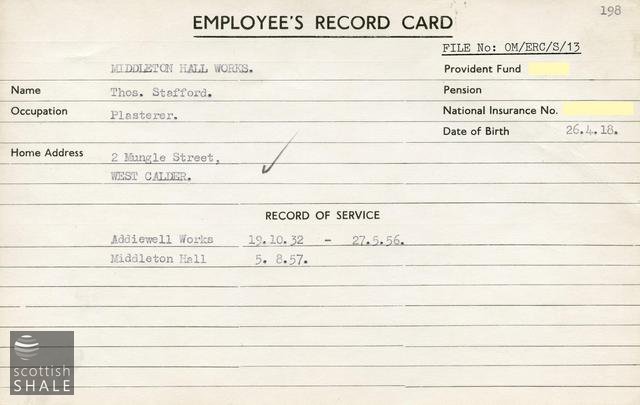 198
EMPLOYEE'S RECORD CARD
FILE No: OM/ERC/S/13
MIDDLETON HALL WORKS.
Provident Fund
Name Thos. Stafford.
Pension
Occupation Plasterer.
National Insurance No.
Date of Birth 26.4.18.
Home Address 2 Mungle Street,
WEST CALDER.
RECORD OF SERVICE
Addiewell Works 19.10.32 - 27.5.56.
Middleton Hall 5. 8.57.
scottish
SHALE